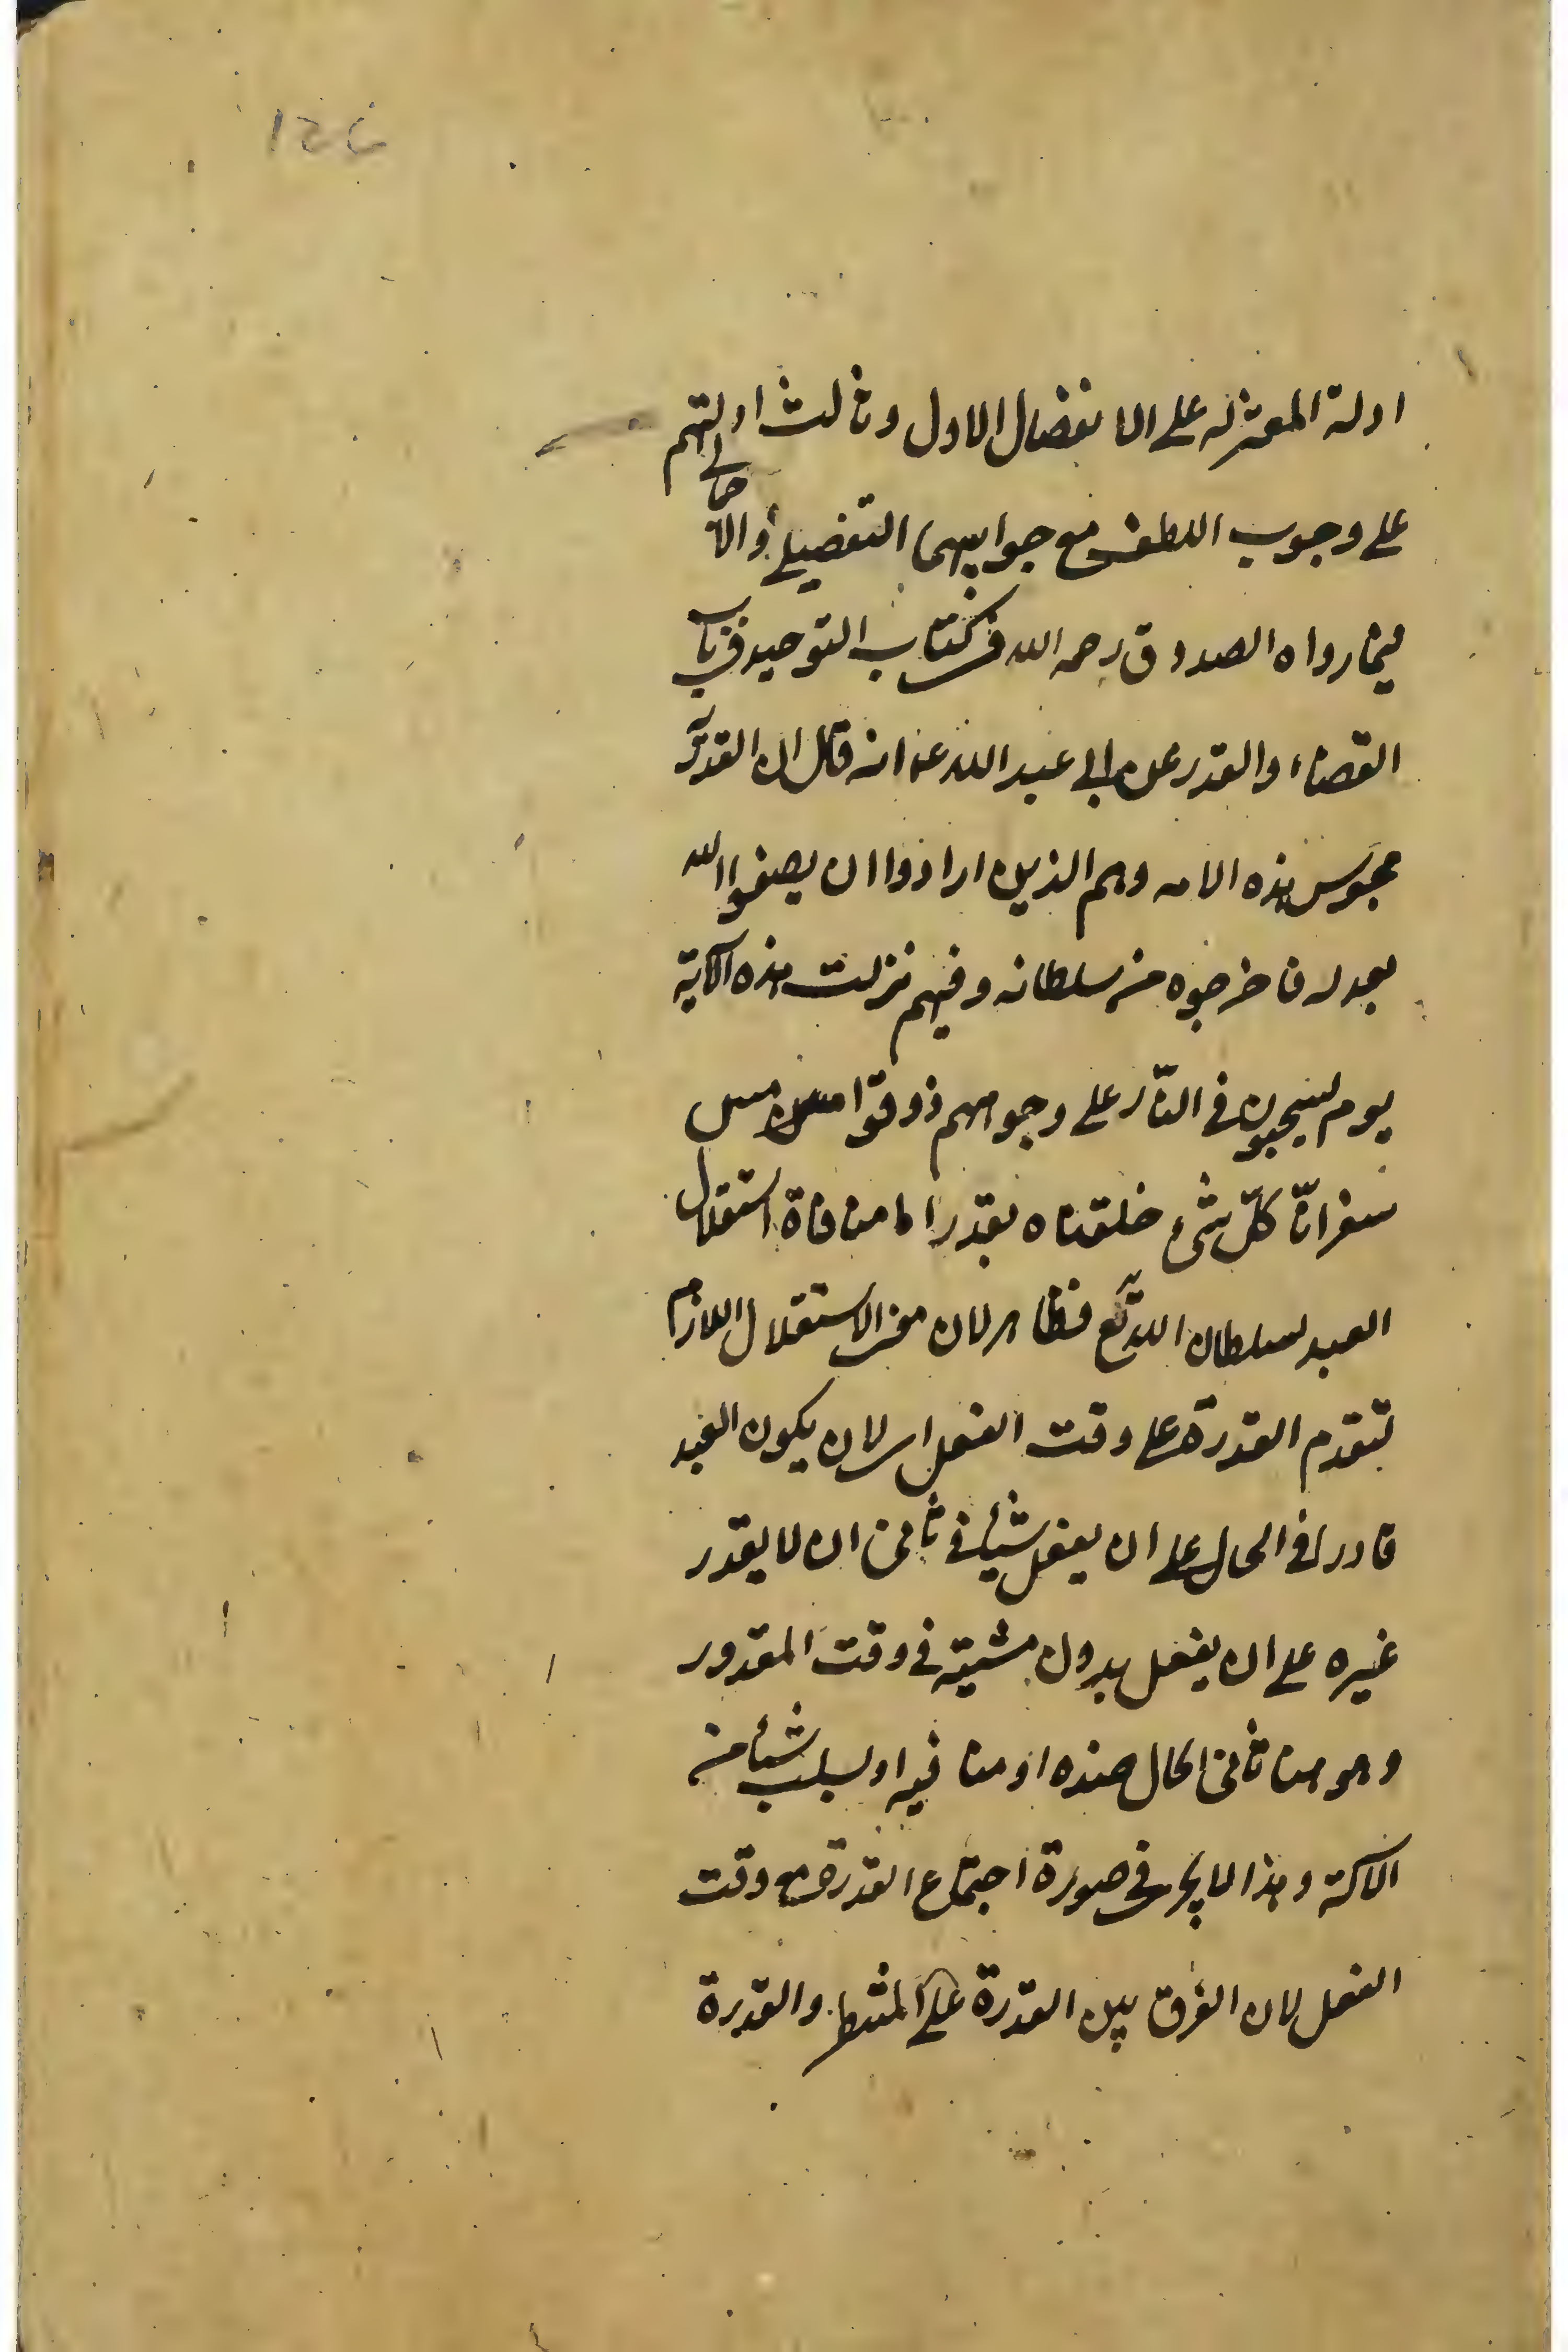 ادلة المعتزله على الانفصال الاول وثالث ادلتهم
على وجوب اللطف مع جوابيهما التفصيلى والا
جمالى
فيما رواه الصدوق رحمه الله فى كتاب التوحيد فى باب
القضاء والقدر عن ابى عبد الله ع انه قال ان القدرية
مجوس هذه الامه وهم الذين ارادوا ان يصفوا الله
بعدله فاخرجوه من سلطانه وفيهم نزلت هذه الآية
يوم يسحبون فى النّار على وجوههم ذوقوا مس
سقر انّا كلّ شئ خلقناه بقدر اما منافاة استقلال
العبد لسلطان الله تع فظاهر لان معنى الاستقلال اللازم
لتقدم القدرة على وقت الفعل لان يكون العبد
قادرا فى الحال على ان يفعل شيئا فى ثانى ان لا يقدر
غيره على ان يفعل بدون مشيته فى وقت المقدور
وهو هنا ثانى الحال ضده او منافيه او يسلب شيئا من
الآلة وهذا لا يجرى فى صورة اجتماع القدرة مع وقت
الفعل لان الفرق بين القدرة على المشط والقدرة